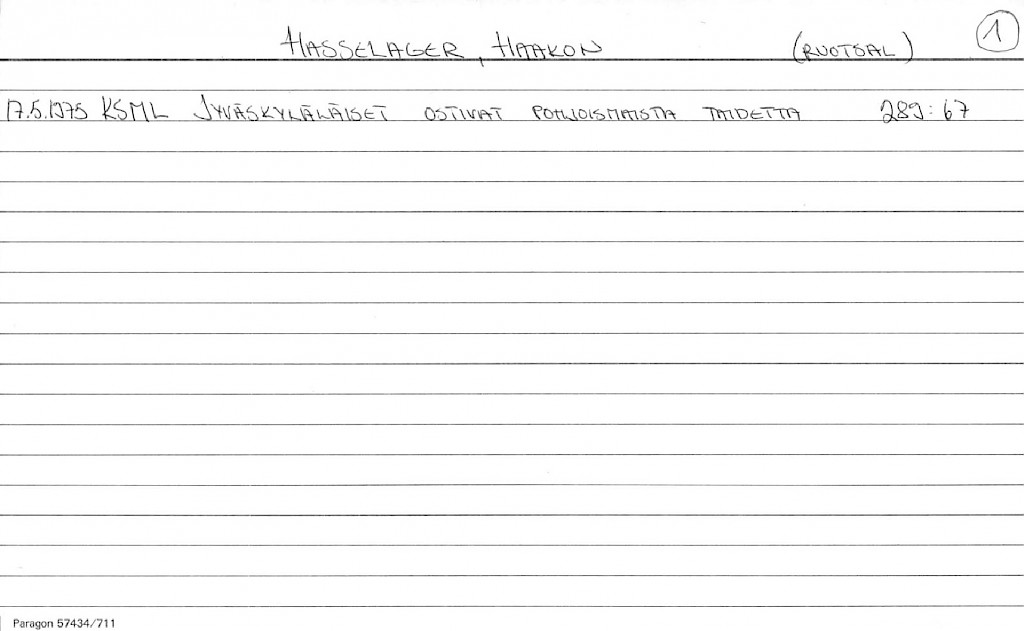 HASSELAGER, HAAKON (RUOTSAL) 1
17.5.1975 KSML JYVÄSKYLÄLÄISET OSTIVAT POHJOISMAISTA TAIDETTA 289:67
Paragon 57434/711